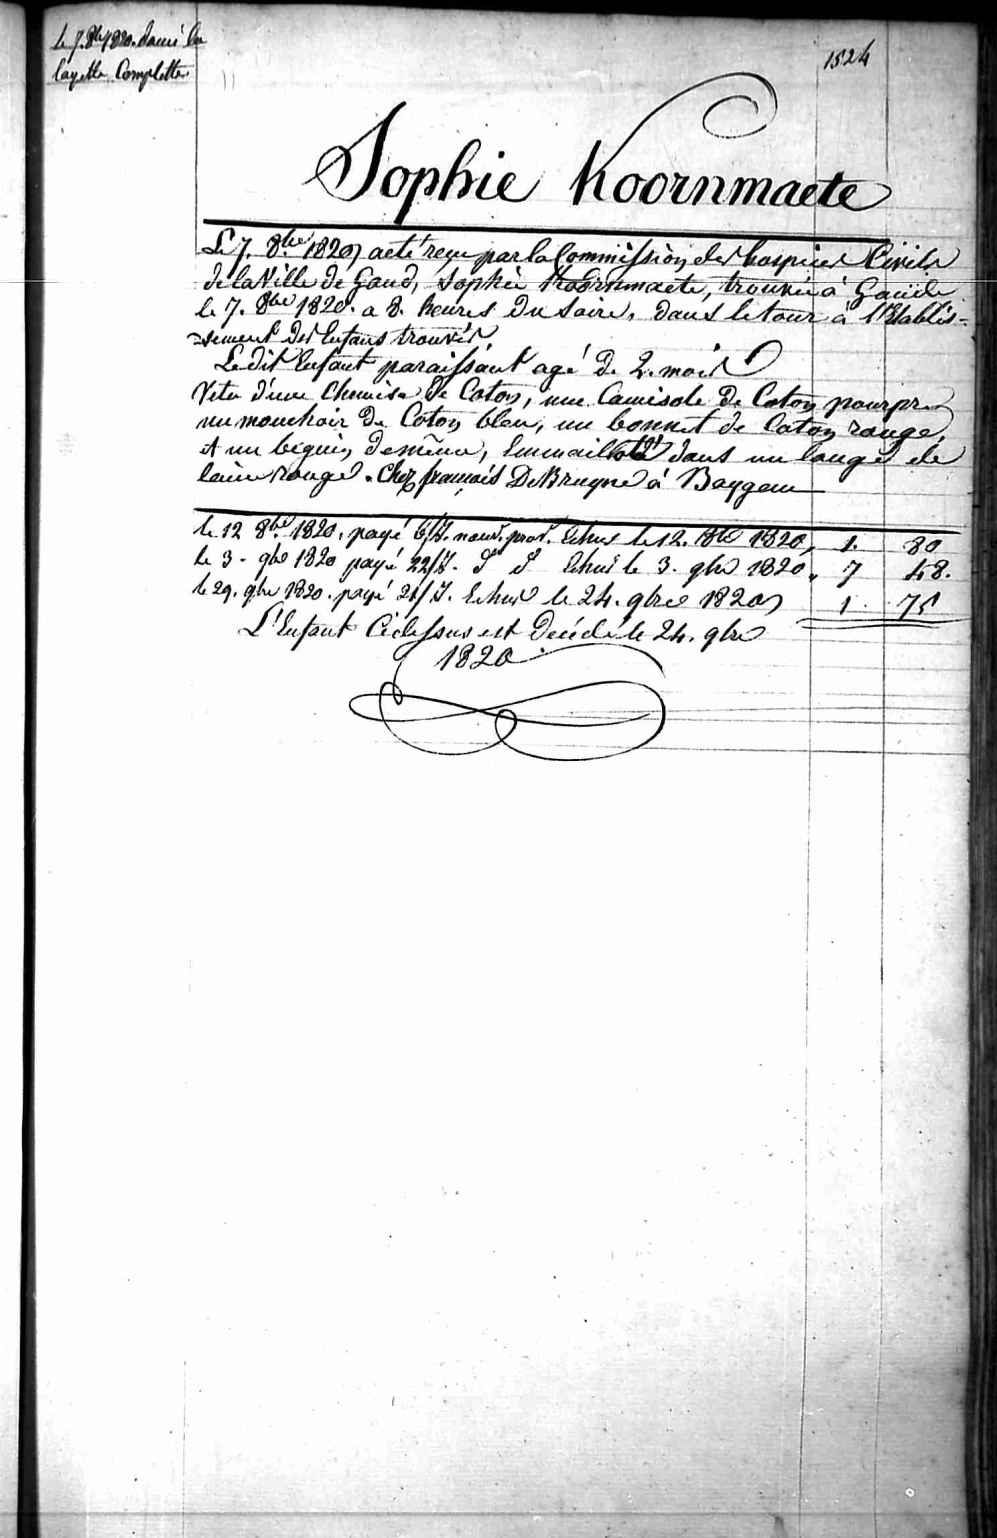 Le 7. 8bre 1820. donné la
layette Complette
1524
Sophie Koornmaete
Le 7. 8bre 1820, a eté reçu par la Commission des hospices Civils
de la Ville de Gand, Sophie Koornmaete, trouvée à Gand le
le 7. 8bre 1820. a 8. heures du soire, dans le tour à l'Etablis=
=sement des Enfans trouvés.
Le dit Enfant paraissant agé de 2. mois
Vetu d'une Chemise de Coton, une Camisole de Coton pourpre
un mouchoir de Coton bleu, un bonnet de Coton rouge,
et un beguin de même, Emmailloté dans un lange de
laine rouge. Chez françois De Bruyne à Baygem
le 12 8bre 1820, payé 6/J. nour. prov. Echus le 12. 8bre 1820, 1. 80
le 3. 9bre 1820 payé 22/J. d° d° Echus le 3. 9bre 1820. 7 48.
le 29. 9bre 1820. payé 21/J. Echus le 24. 9bre 1820 1. 75
L'Enfant Cidessus est Decédé le 24. 9bre
1820.